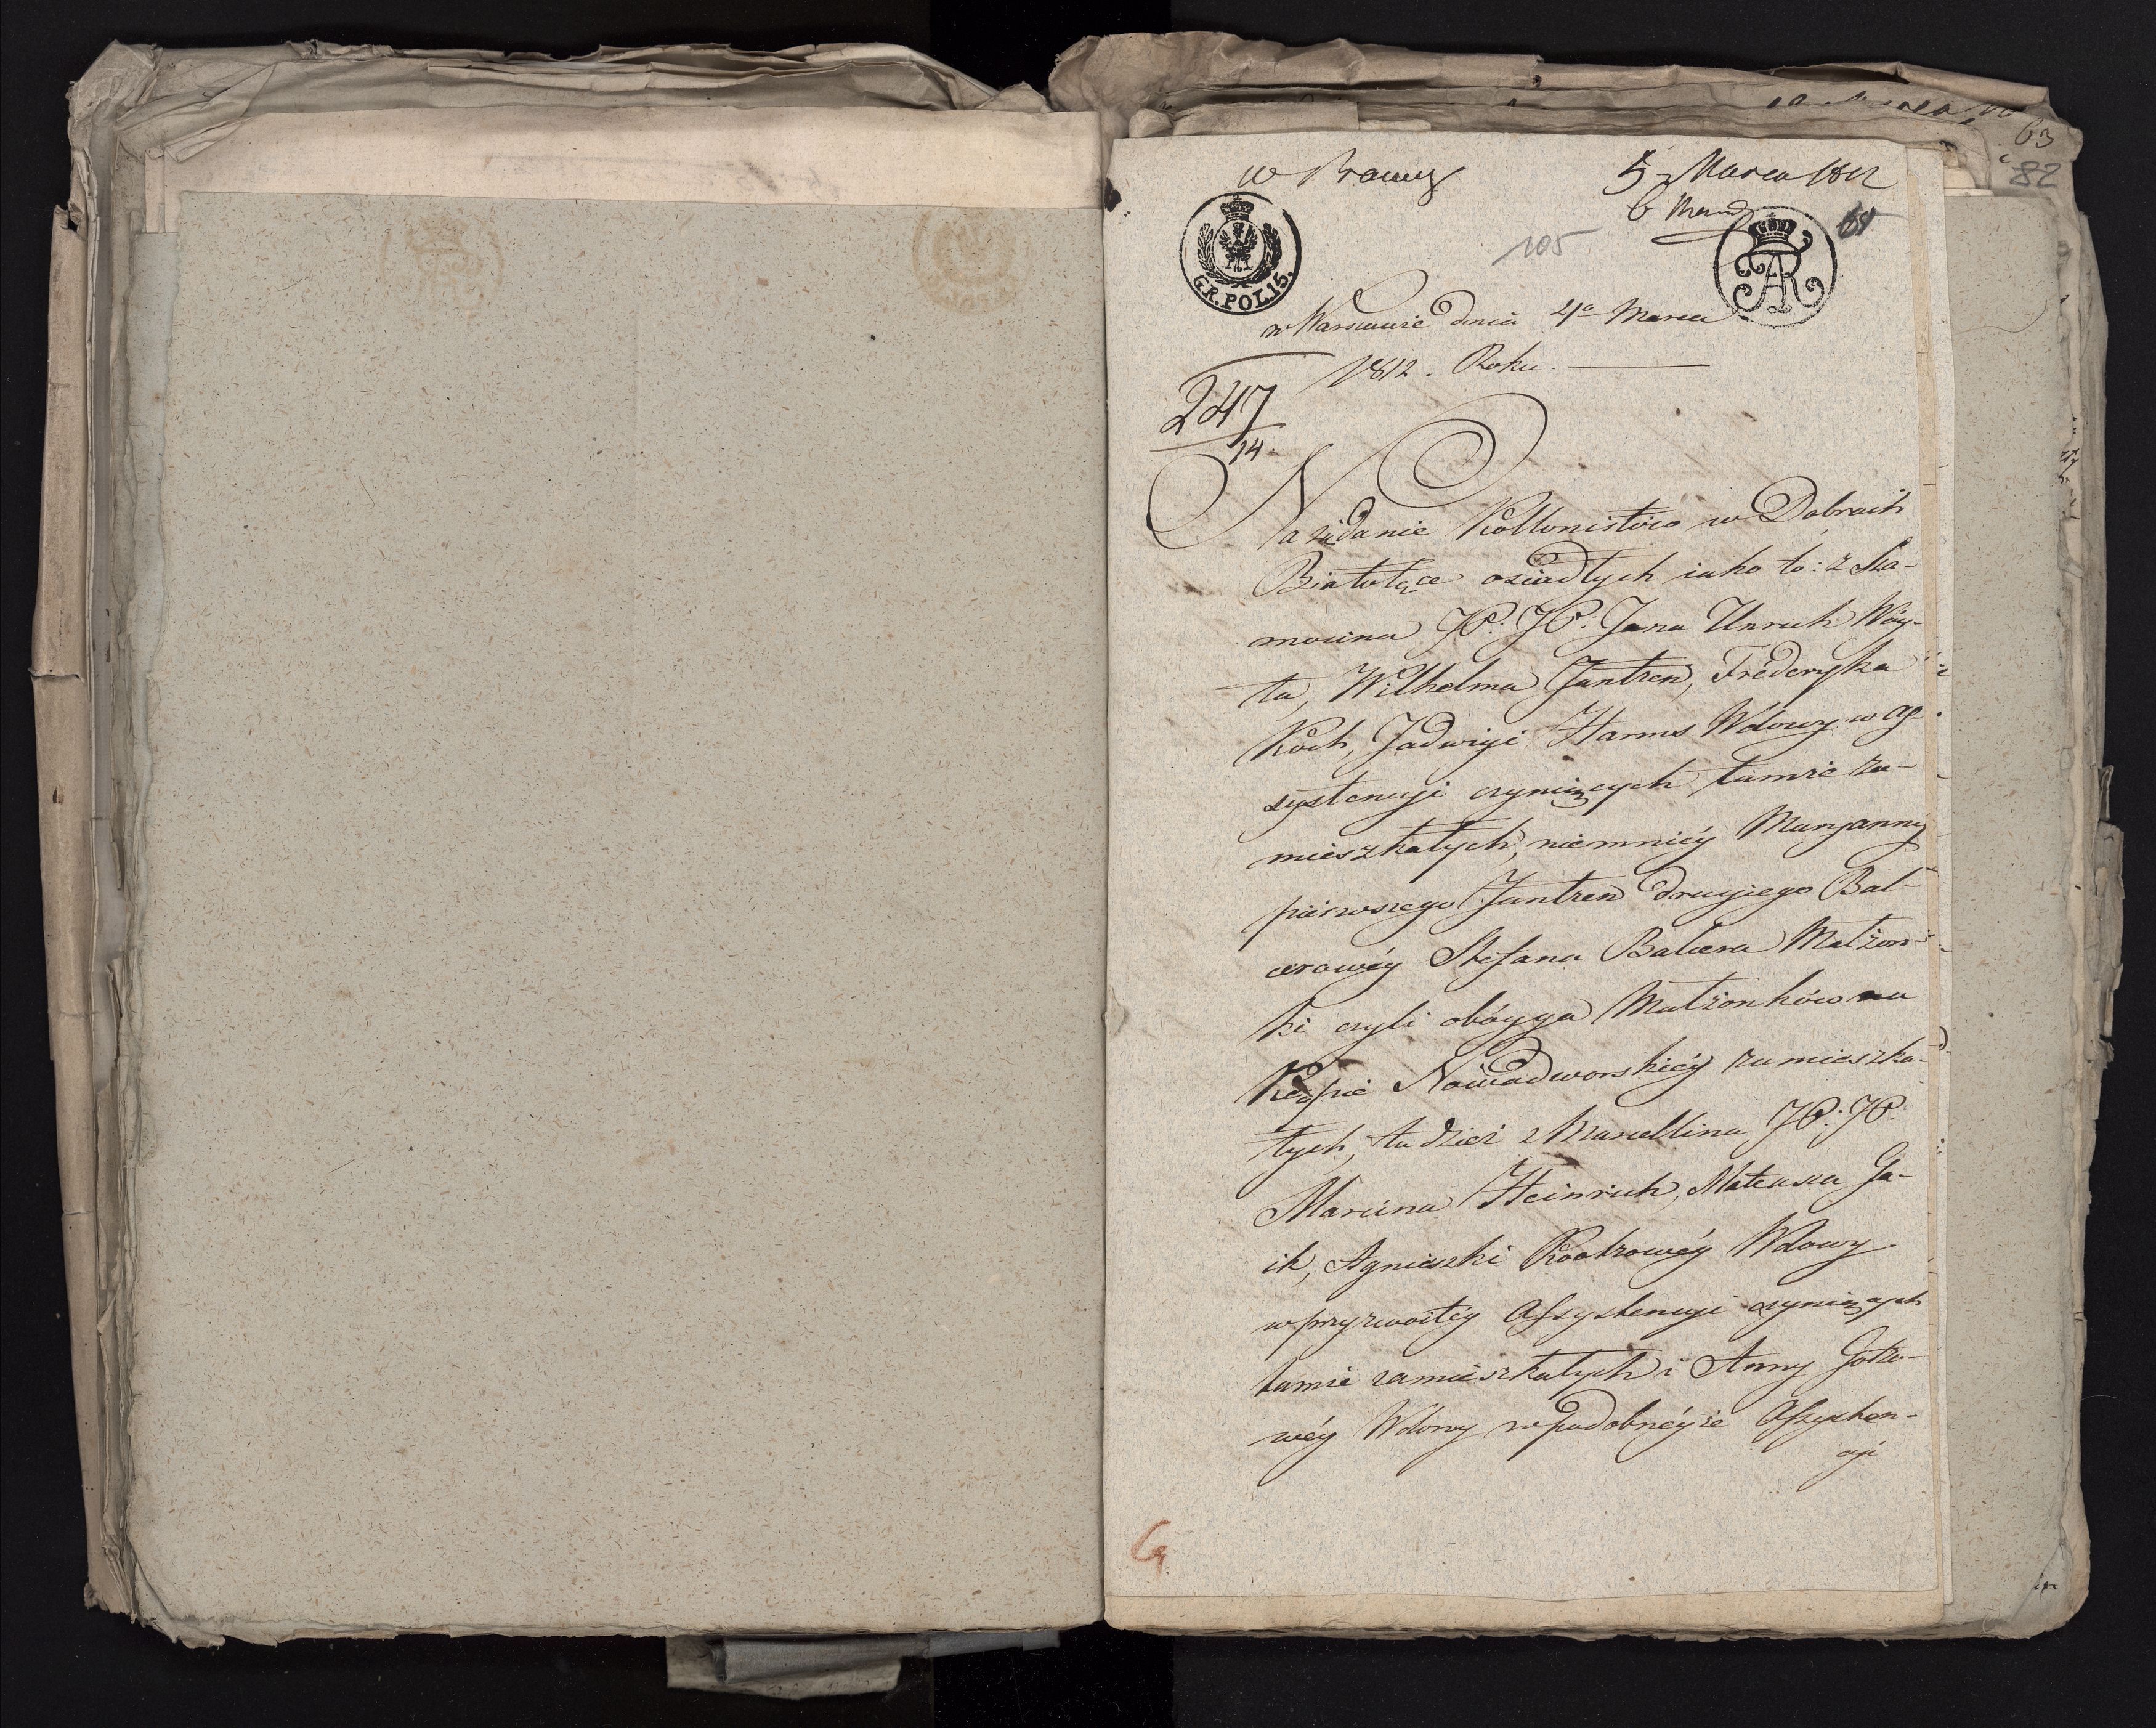 63
82
5 Marca 1812
6
68
105
G.R.POL.15.
AR
w Warszawie dnia 4º Marca
1812. Roku.
247
14.
Na żądanie Kollonistów w Dobrach
Białołęce osiadłych iako to: z Ka-
mocina JP: JP: Jana Unruh Wóy-
ta, Wilhelma Jantzen, Fréderyka
Koch, Jadwigi Harms Wdowy w as-
systencyi czyniących tamże za-
mieszkałych, niemniéy Maryanny
piérwszego Jantzen drugiego Bal-
cerowéy Stefana Balcera Małżon-
ki czyli obóyga Małżonków na
Kępie Nowodworskiéy zamieszka-
łych, tudzież z Marcellina JP: JP:
Marcina Heinrich, Mateusza Ga-
ik, Agnieszki Wdowy
w przyzwoitey Assystencyi czyniących
tamże zamieszkałych i Anny
wéy Wdowy w podobnéyże Assysten-
cyi